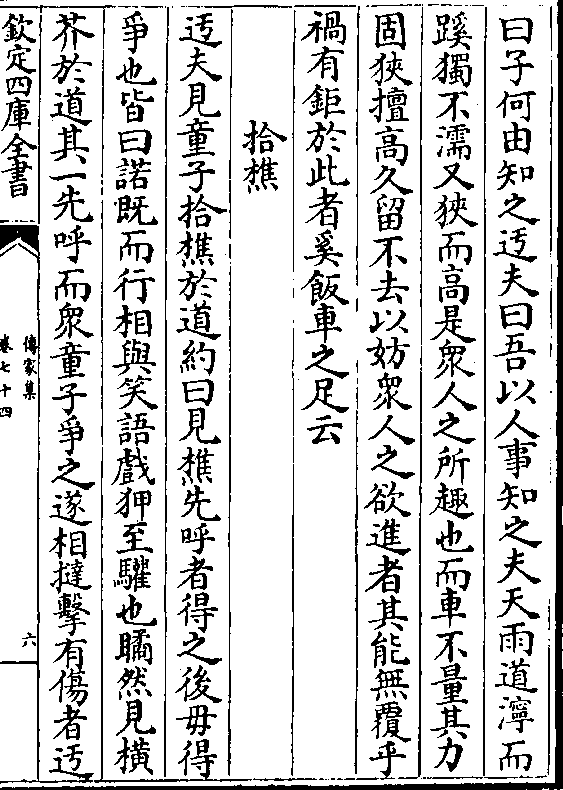 曰子何由知之迃夫曰吾以人事知之夫天雨道濘而
蹊獨不濡又狹而高是衆人之所趣也而車不量其力
固狹擅高久留不去以妨衆人之欲進者其能無覆乎
禍有鉅於此者奚飯車之足云
拾樵
迃夫見童子拾樵於道約曰見樵先呼者得之後毋得
爭也皆曰諾既而行相與笑語戲狎至驩也瞲然見横
芥於道其一先呼而衆童子爭之遂相撻擊有傷者迃
欽定四庫全書
傳家集
卷七十四
六